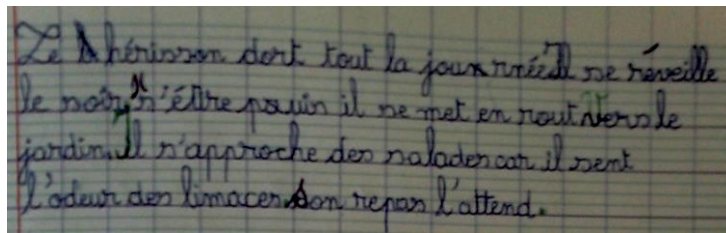 Le hérisson dort tout la jour rnée Il se réveille
le soir, s'étire puuin il se met en rout vers le
jardin. Il s'approche des salades car il sent
l'odeur des limaces. Son repas l'attend.